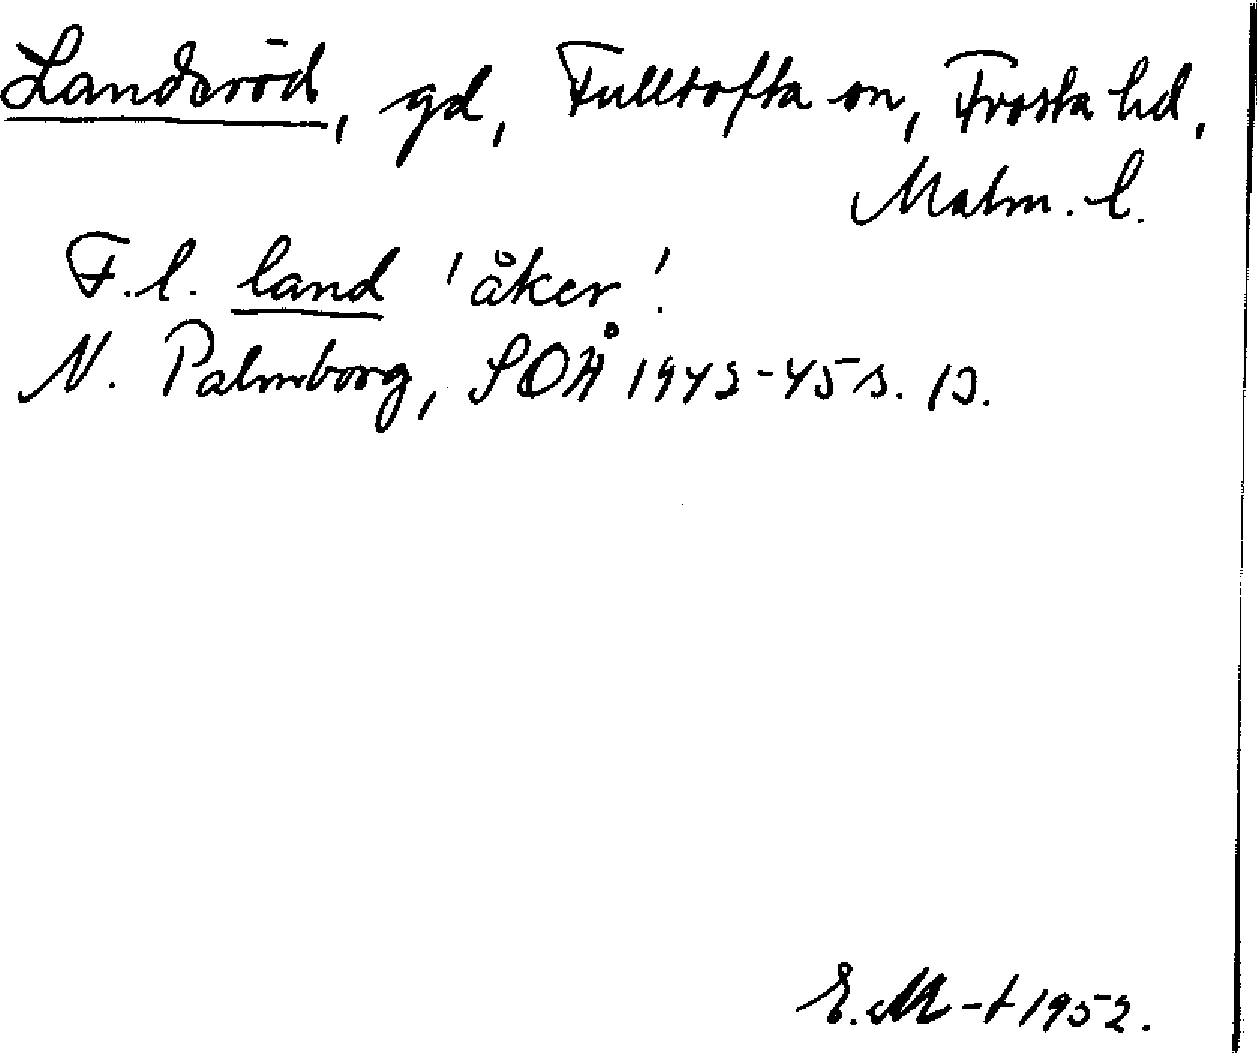 Landsröd, gd, Fulltofta sn, Frosta hd,
Malm. l.
F.l. land 'åker'.
N. Palmborg, SOÅ 1943-45 s. 13.
E. M-t 1952.